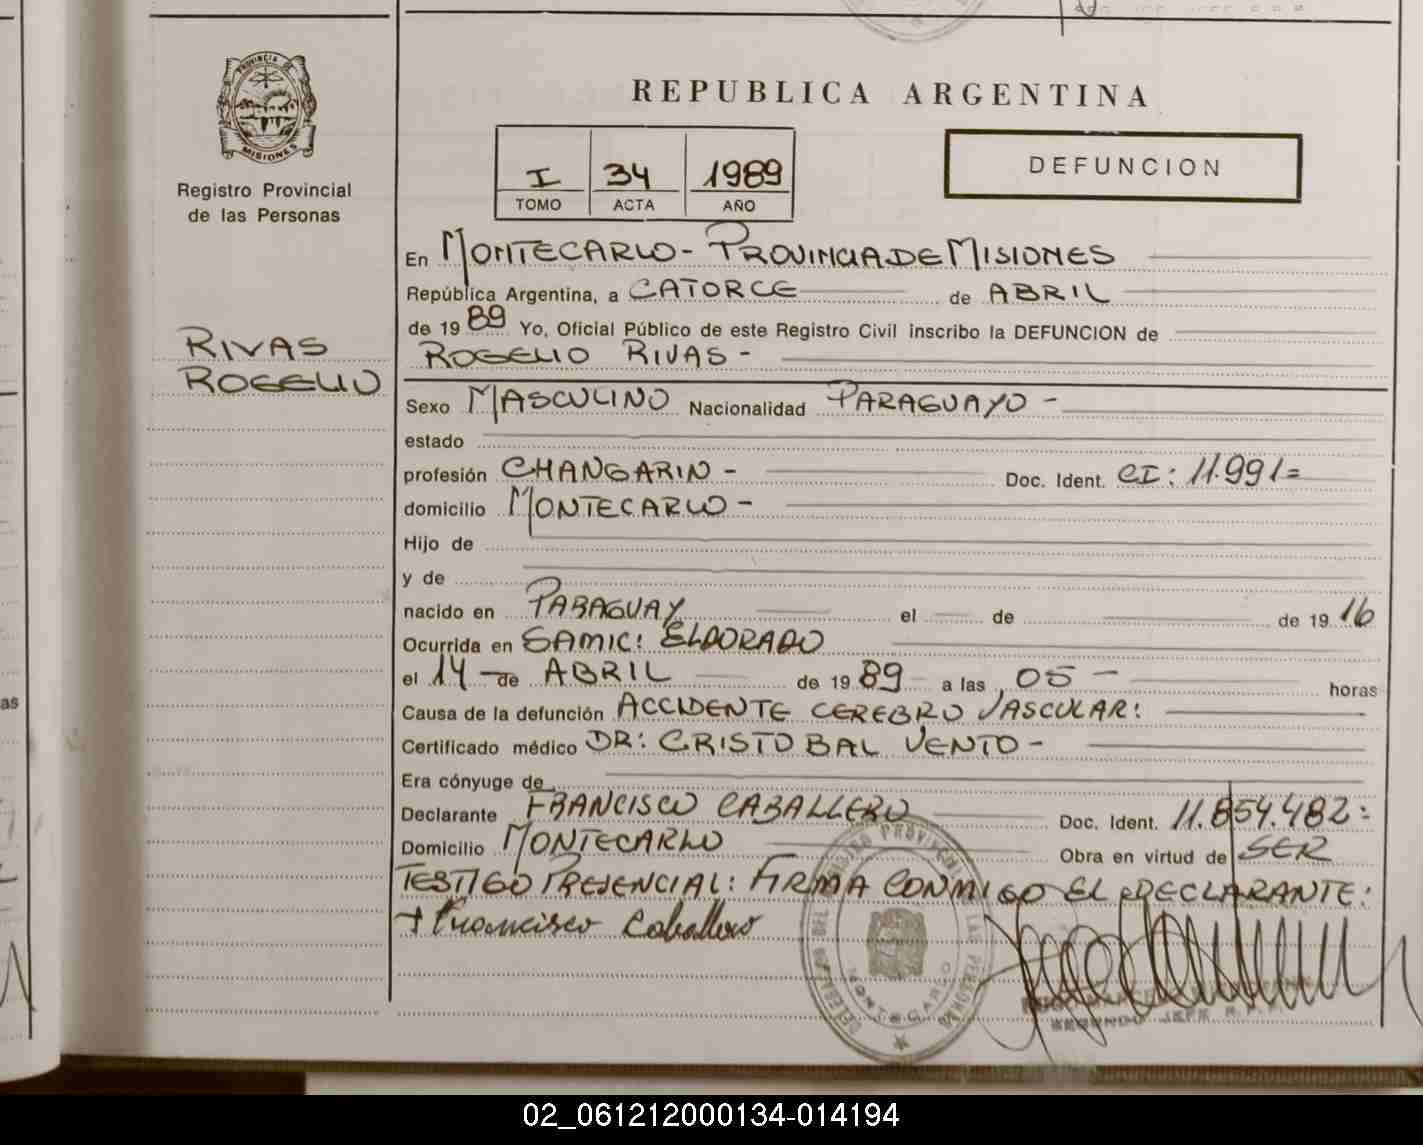 PROVINCIA DE
MISIONES
Registro Provincial
de las Personas
RIVAS
ROGELIO
REPUBLICA ARGENTINA
I 34 1989
TOMO ACTA AÑO
DEFUNCION
En MONTECARLO - PROVINCIA DE MISIONES
República Argentina, a CATORCE de ABRIL
de 1989 Yo, Oficial Público de este Registro Civil inscribo la DEFUNCION de
ROGELIO RIVAS -
Sexo MASCULINO Nacionalidad PARAGUAYO -
estado
profesión CHANGARIN - Doc. Ident. CI: 11.991=
domicilio MONTECARLO -
Hijo de
y de
nacido en PARAGUAY el de de 1916
Ocurrida en SAMIC: ELDORADO
el 14 de ABRIL de 1989 a las 05 - horas
Causa de la defunción ACCIDENTE CEREBRO VASCULAR:
Certificado médico DR: CRISTOBAL VENTO -
Era cónyuge de
Declarante FRANCISCO CABALLERO Doc. Ident. 11.854.482:
Domicilio MONTECARLO Obra en virtud de SER
TESTIGO PRESENCIAL: FIRMA CONMIGO EL DECLARANTE:
+ Francisco Caballero
MONTECARLO
SEGUNDO JEFE
as
02_061212000134-014194